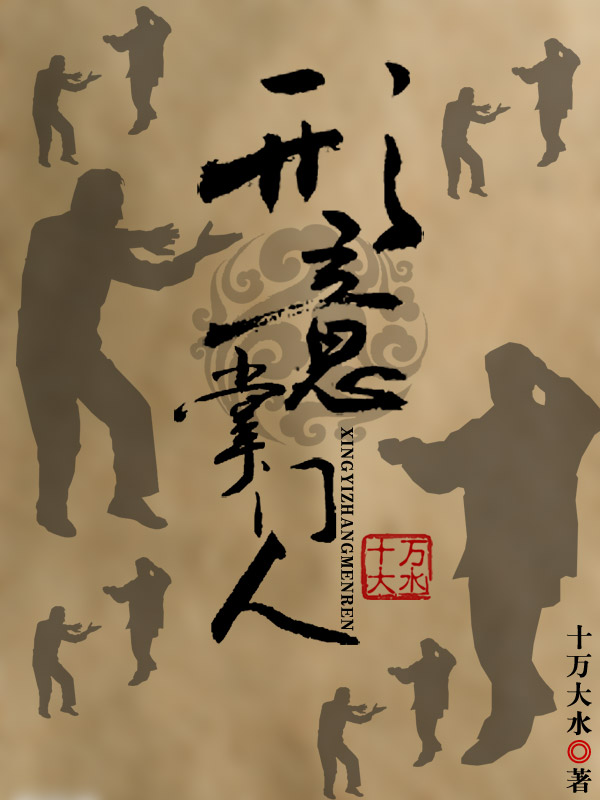 形意掌门人
XINGYIZHANGMENREN
十万大水
十万大水◎著